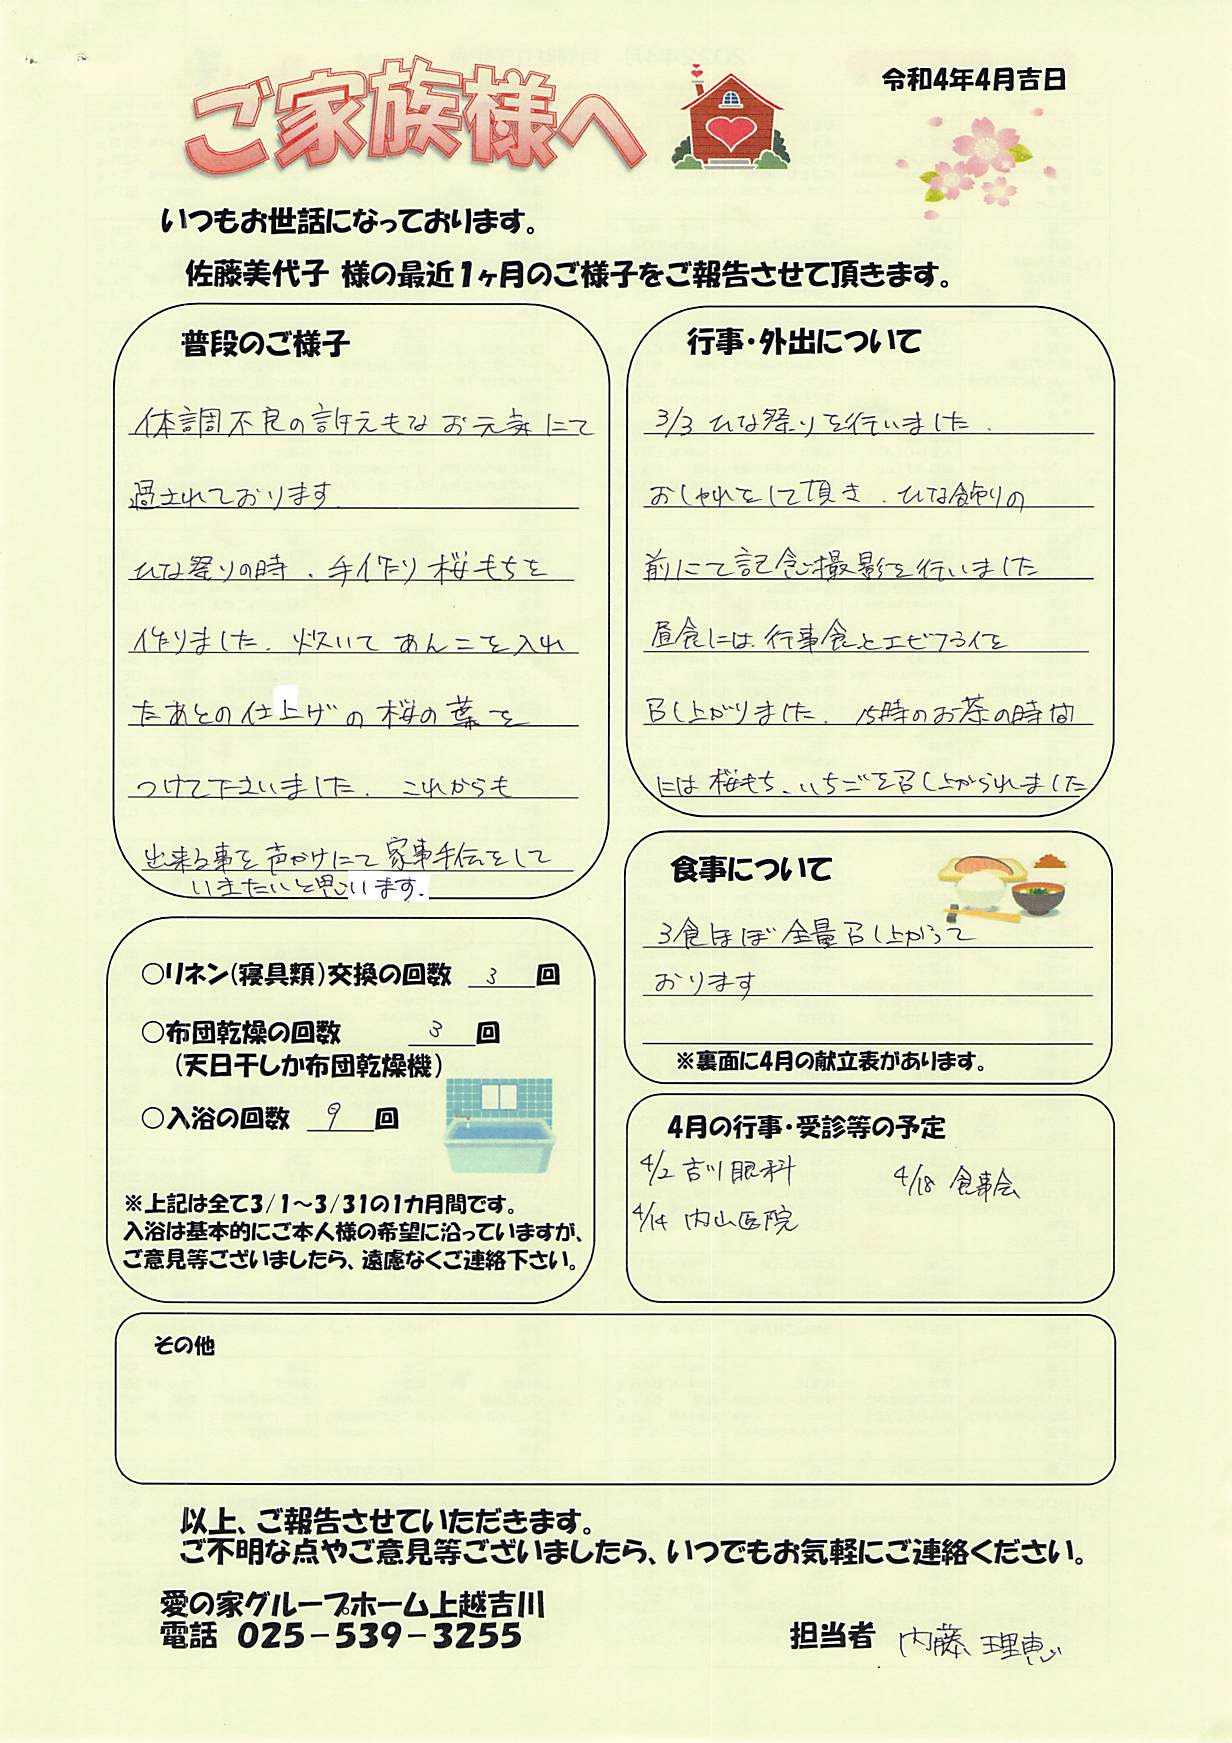 ご家族様へ
令和4年4月吉日
いつもお世話になっております。
佐藤美代子 様の最近1ヶ月のご様子をご報告させて頂きます。
普段のご様子
体調不良の訴えもなお元気にて
過されております
ひな祭りの時、手作り桜もちを
作りました。炊いてあんこを入れ
たあとの仕上げの桜の葉を
つけて下さいました。これからも
出来る事を声かけにて家事手伝をして
いきたいと思います。
行事・外出について
3/3 ひな祭りを行いました.
おしゃれをして頂き、ひな飾りの
前にて記念撮影を行いました
昼食には行事食とエビフライを
召し上がりました. 15時のお茶の時間
には桜もち、いちごを召し上がられました
食事について
3食ほぼ全量召し上がって
おります
※裏面に4月の献立表があります。
○リネン(寝具類)交換の回数 3 回
○布団乾燥の回数 3 回
(天日干しか布団乾燥機)
○入浴の回数 9 回
※上記は全て3/1~3/31の1カ月間です。
入浴は基本的にご本人様の希望に沿っていますが、
ご意見等ございましたら、遠慮なくご連絡下さい。
4月の行事・受診等の予定
4/2 吉川眼科
4/18 食事会
4/14 内山医院
その他
以上、ご報告させていただきます。
ご不明な点やご意見等ございましたら、いつでもお気軽にご連絡ください。
愛の家グループホーム上越吉川
電話 025-539-3255
担当者 内藤 理恵